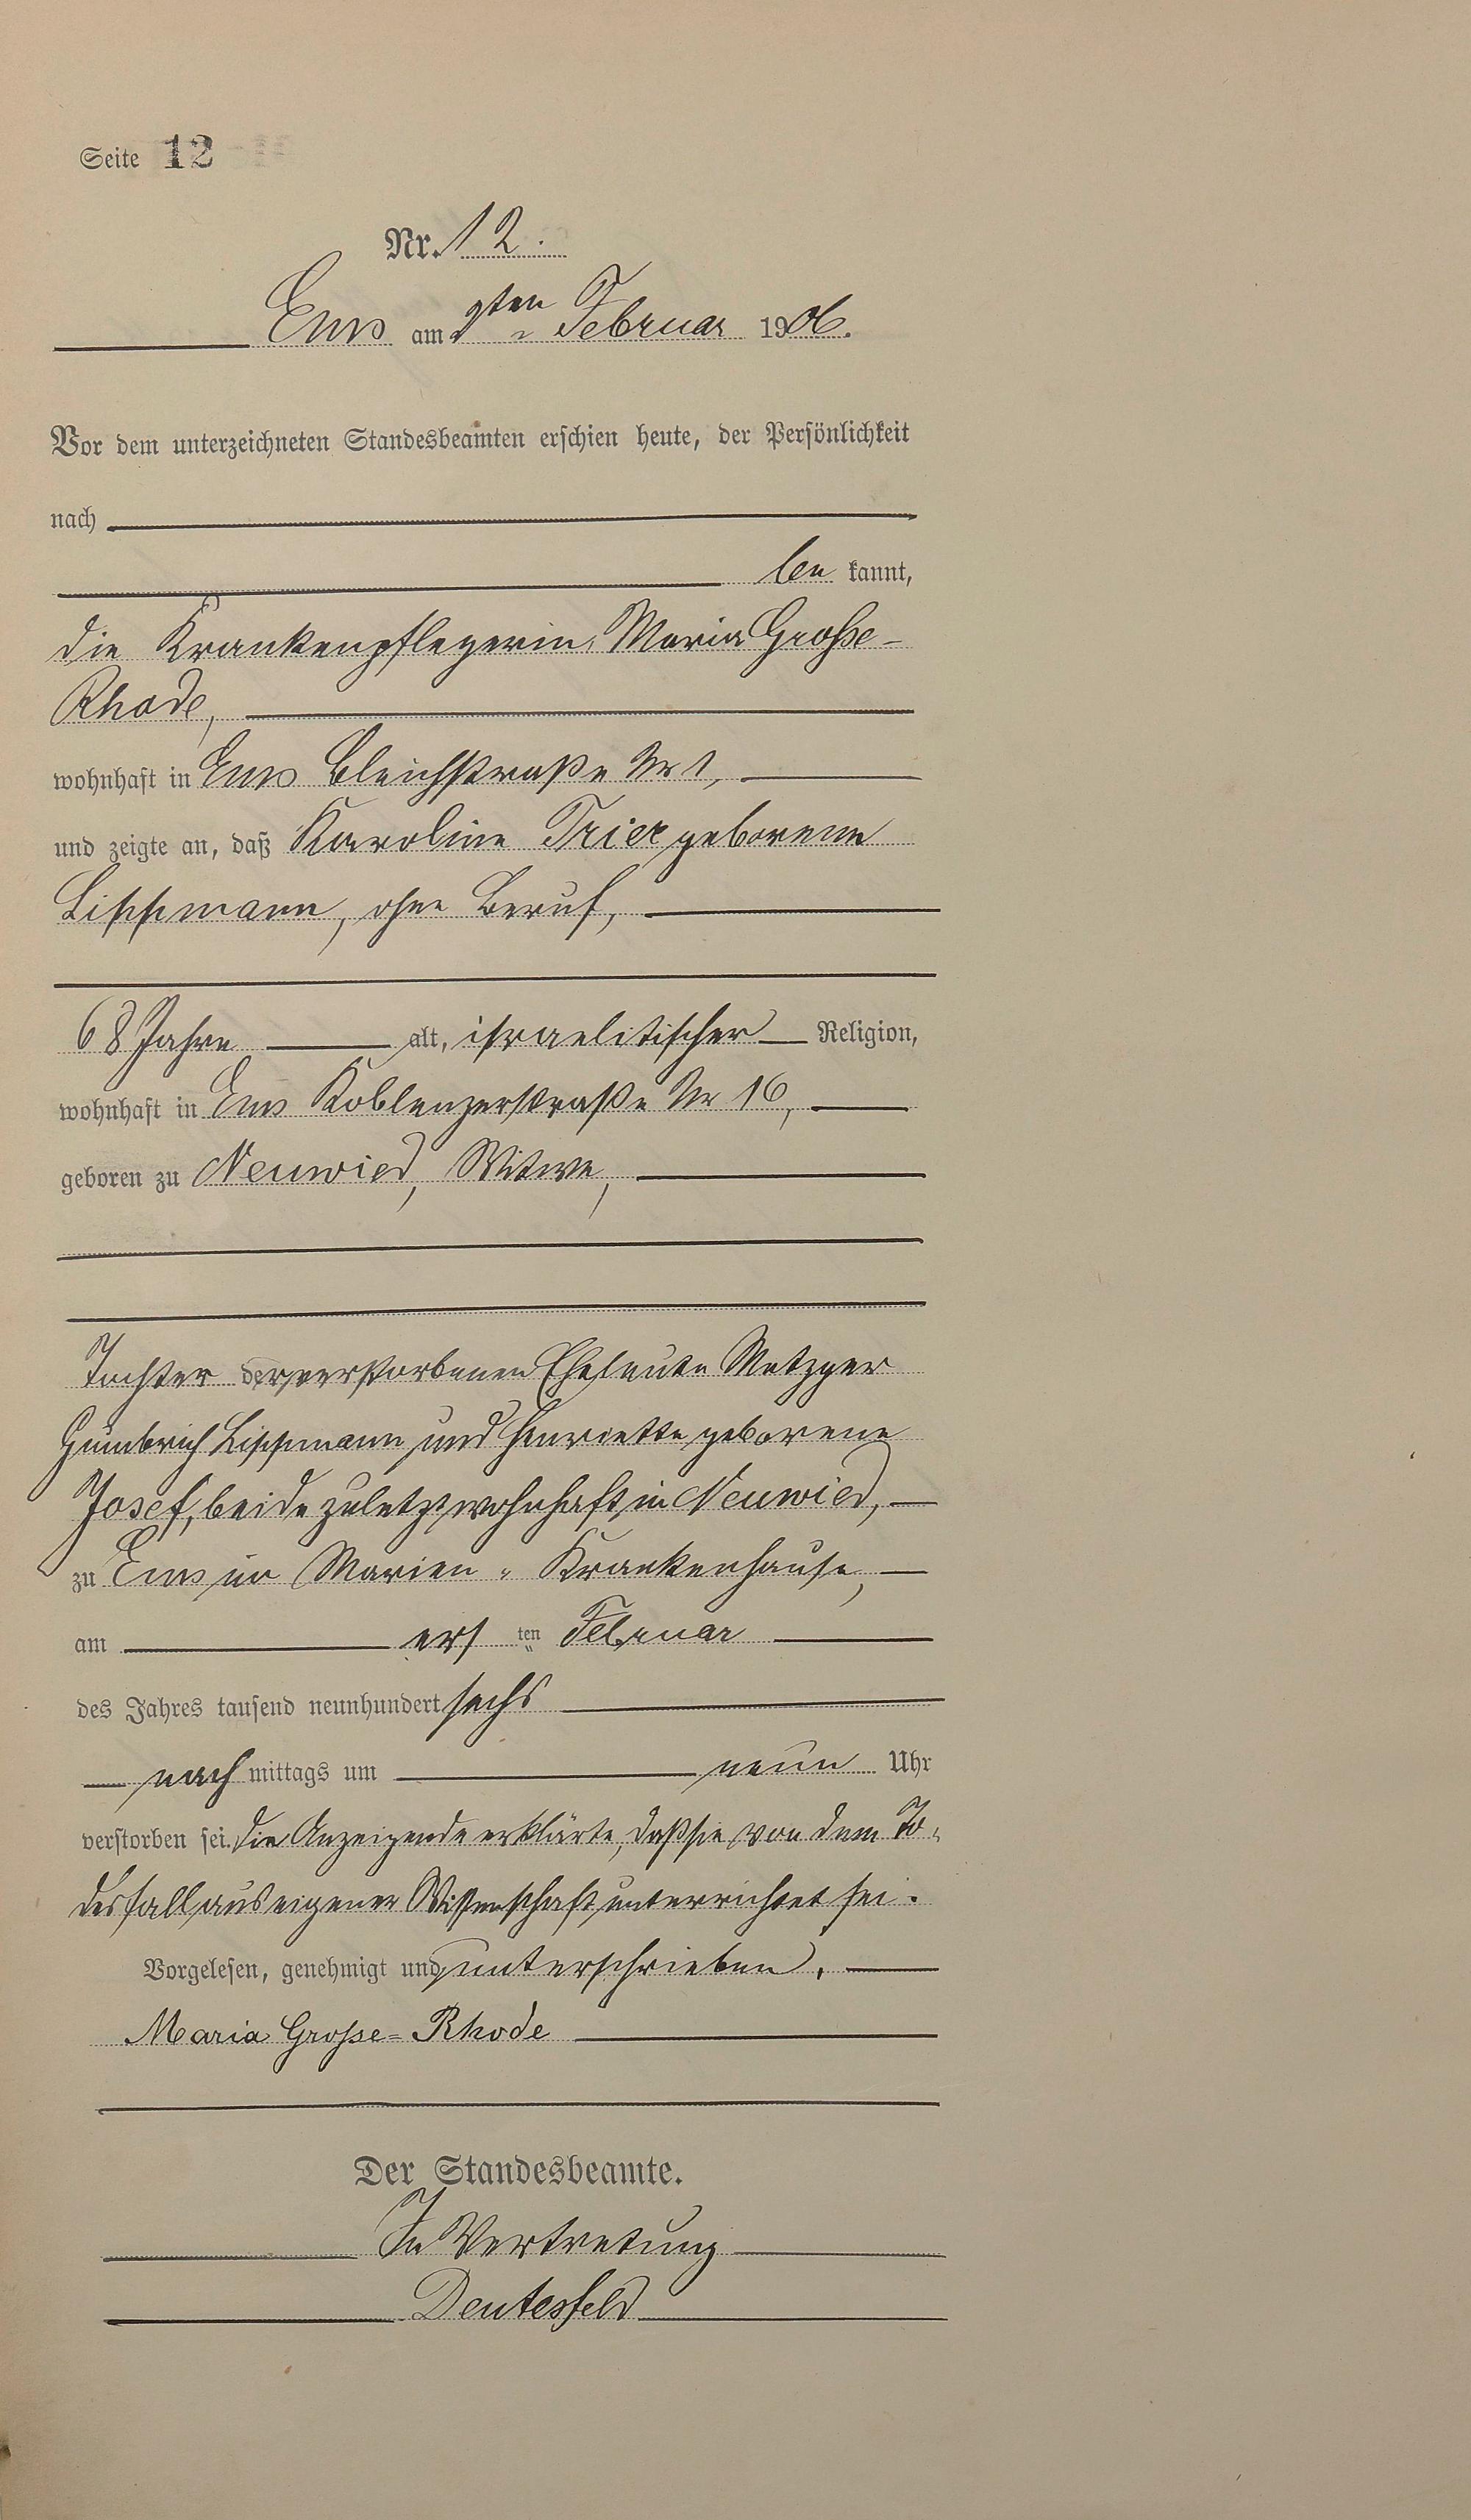 Seite 12
Nr. 12.
Ems am 2ten Februar 1906.
Vor dem unterzeichneten Standesbeamten erschien heute, der Persönlichkeit
nach
be kannt,
die Krankenpflegerin Maria Große-
Rhode,
wohnhaft in Ems Bleichstraße Nr 1,
und zeigte an, daß Karoline Trier geborene
Lippmann, ohne Beruf,
68 Jahre alt, israelitischer Religion,
wohnhaft in Ems Koblenzerstraße Nr 16,
geboren zu Neuwied, Witwe,
Tochter der verstorbenen Eheleute Metzger
Lippmann und Henriette geborene
Josef, beide zuletzt wohnhaft in Neuwied,
zu Ems im Marien-Krankenhause,
am ersten Februar
des Jahres tausend neunhundert sechs
nachmittags um neun Uhr
verstorben sei. Die Anzeigende erklärte, daß sie von dem To-
desfall aus eigener Wissenschaft unterrichtet sei.
Vorgelesen, genehmigt und unterschrieben.
Maria Große-Rhode
Der Standesbeamte.
In Vertretung
Deutesfeld